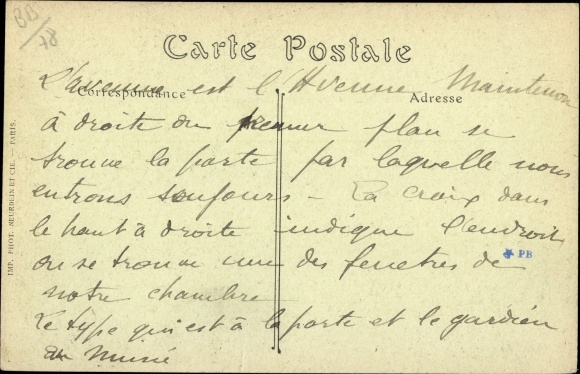 BB/78
Carte Postale
Correspondance
Adresse
L'avenue est l'Avenue Maintenon
à droite du premier plan se
trouve la porte par laquelle nous
entrons toujours - La croix dans
le haut à droite indique l'endroit
ou se trouve une des fenetres de
notre chambre
Le type qui est à la porte et le gardien
du Musée
PB
IMP. PHOT. NEURDEIN ET CIE. — PARIS.